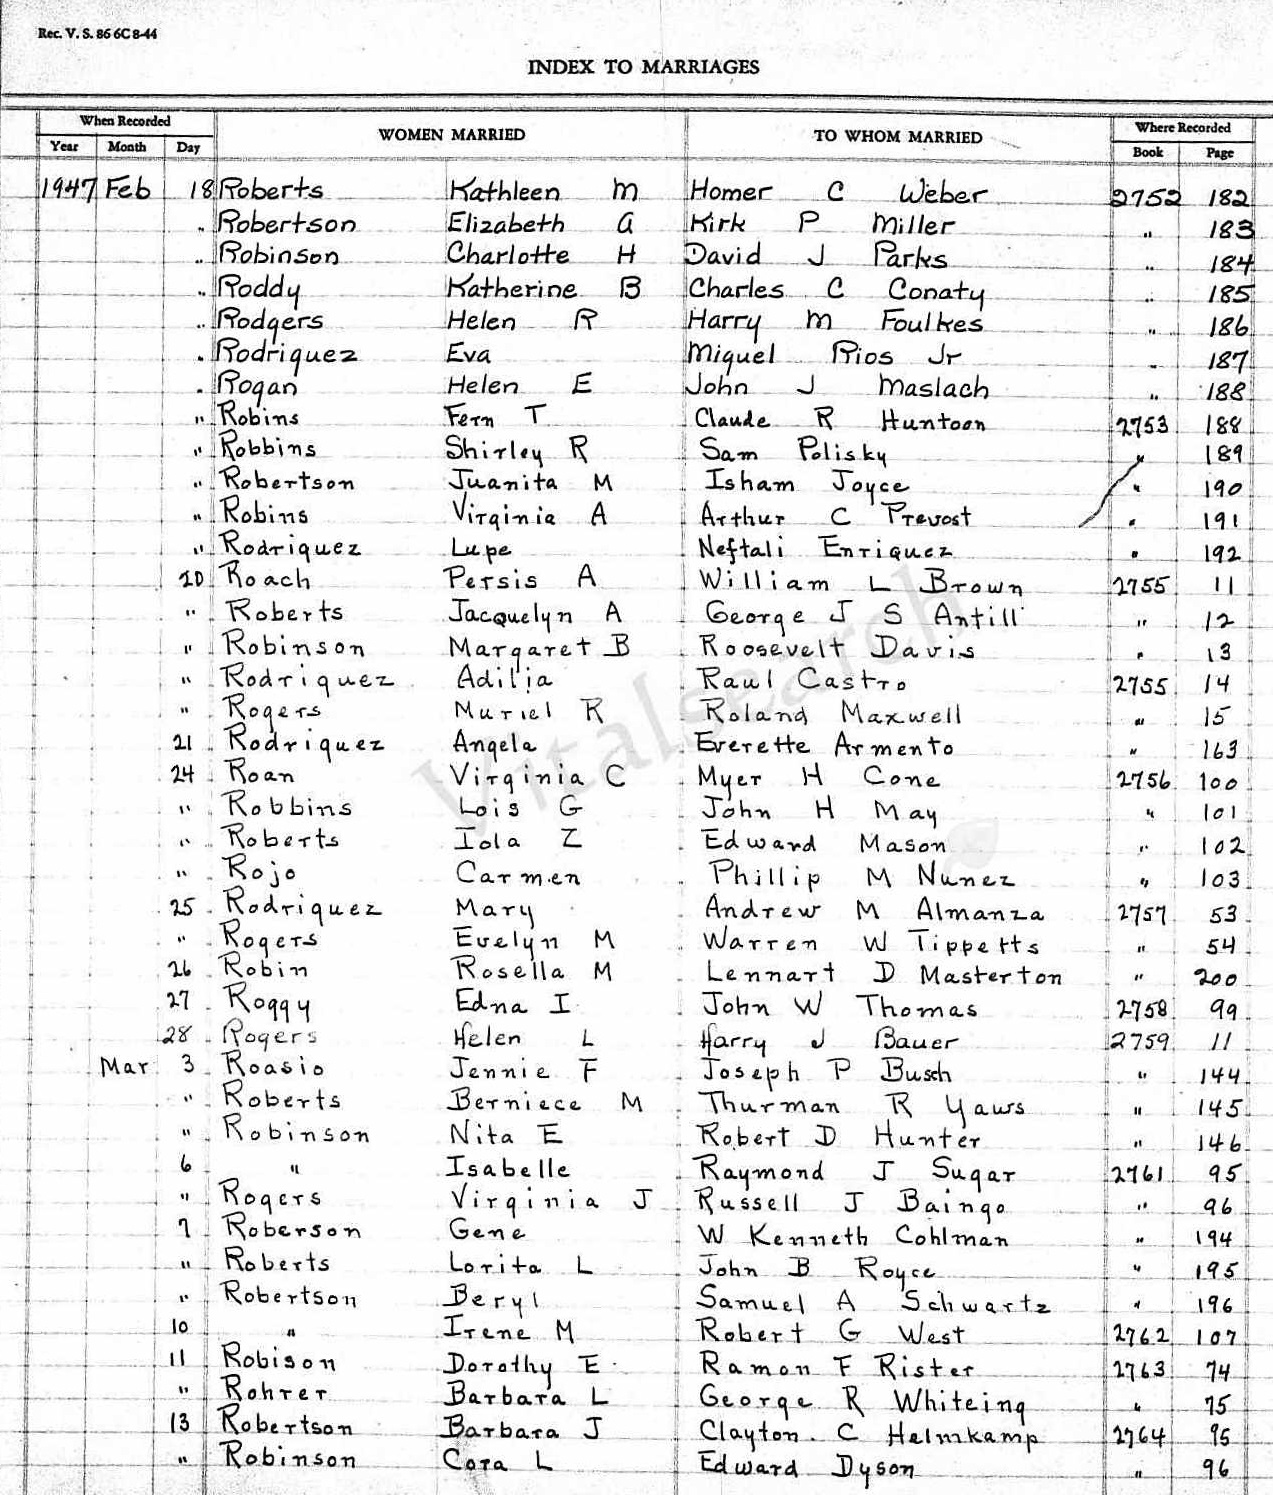 Rec. V. S. 86 6C 8-44
INDEX TO MARRIAGES
When Recorded WOMEN MARRIED TO WHOM MARRIED Where Recorded
Year Month Day Book Page
1947 Feb 18 Roberts Kathleen M Homer C Weber 2752 182
" Robertson Elizabeth A Kirk P Miller " 183
" Robinson Charlotte H David J Parks " 184
" Roddy Katherine B Charles C Conaty " 185
" Rodgers Helen R Harry M Foulkes " 186
" Rodriquez Eva Miquel Rios Jr " 187
" Rogan Helen E John J Maslach " 188
" Robins Fern T Claude R Huntoon 2753 188
" Robbins Shirley R Sam Polisky " 189
" Robertson Juanita M Isham Joyce " 190
" Robins Virginia A Arthur C Prevost " 191
" Rodriquez Lupe Neftali Enriquez " 192
20 Roach Persis A William L Brown 2755 11
" Roberts Jacquelyn A George J S Antill " 12
" Robinson Margaret B Roosevelt Davis " 13
" Rodriquez Adilia Raul Castro 2755 14
" Rogers Muriel R Roland Maxwell " 15
21 Rodriquez Angela Everette Armento " 163
24 Roan Virginia C Myer H Cone 2756 100
" Robbins Lois G John H May " 101
" Roberts Iola Z Edward Mason " 102
" Rojo Carmen Phillip M Nunez " 103
25 Rodriquez Mary Andrew M Almanza 2757 53
" Rogers Evelyn M Warren W Tippetts " 54
26 Robin Rosella M Lennart D Masterton " 200
27 Roggy Edna I John W Thomas 2758 99
28 Rogers Helen L Harry J Bauer 2759 11
Mar 3 Roasio Jennie F Joseph P Busch " 144
" Roberts Berniece M Thurman R Yaws " 145
" Robinson Nita E Robert D Hunter " 146
6 " Isabelle Raymond J Sugar 2761 95
" Rogers Virginia J Russell J Baingo " 96
7 Roberson Gene W Kenneth Cohlman " 194
" Roberts Lorita L John B Royce " 195
" Robertson Beryl Samuel A Schwartz " 196
10 " Irene M Robert G West 2762 107
11 Robison Dorothy E Ramon F Rister 2763 74
" Rohrer Barbara L George R Whiteing " 75
13 Robertson Barbara J Clayton C Helmkamp 2764 95
" Robinson Cora L Edward Dyson " 96
Vitalsearch